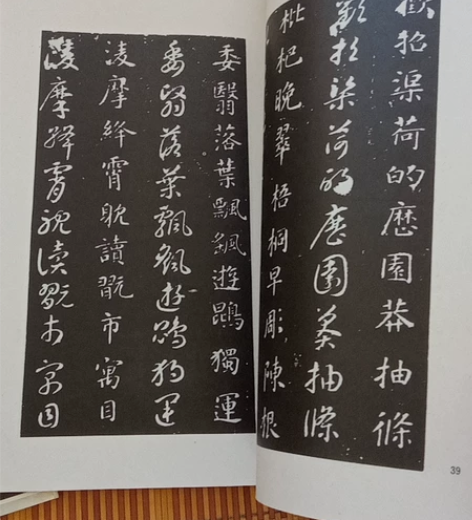 歡招渠荷的歷園莽抽條
歡招渠荷的歷園莽抽條
枇杷晚翠梧桐早彫陳根
委翳落葉飄颻遊鵾獨運
委翳落葉飄颻遊鵾獨運
凌摩絳霄耽讀翫市寓目
凌摩絳霄耽讀翫市寓目
39